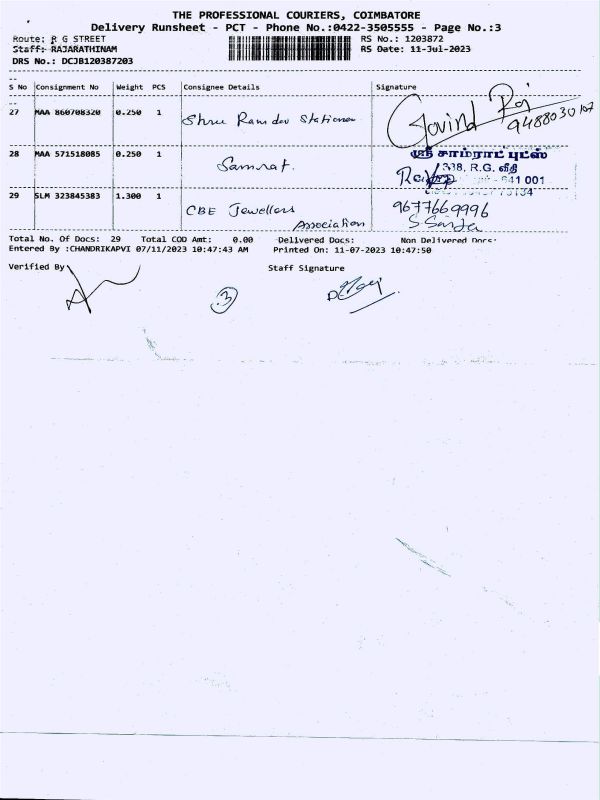 THE PROFESSIONAL COURIERS, COIMBATORE
Delivery Runsheet - PCT - Phone No.:0422-3505555 - Page No.:3
Route: R G STREET RS No.: 1203872
Staff: RAJARATHINAM RS Date: 11-Jul-2023
DRS No.: DCJB120387203
S No Consignment No Weight PCS Consignee Details Signature
27 MAA 860708320 0.250 1 Shree Ramdev Stationer Govind Raj
9488030107
28 MAA 571518085 0.250 1 Samrat. ஸ்ரீ சாம்ராட் புட்ஸ்
338, R.G. வீதி
641 001
29 SLM 323845383 1.300 1 CBE Jewellers 9677669996
Association
Total No. Of Docs: 29 Total COD Amt: 0.00 Delivered Docs: Non Delivered Docs:
Entered By :CHANDRIKAPVI 07/11/2023 10:47:43 AM Printed On: 11-07-2023 10:47:50
Verified By Staff Signature
3